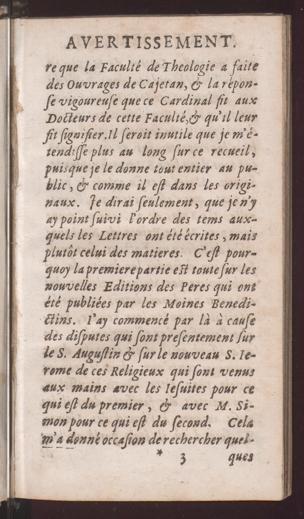 AVERTISSEMENT.
re que la Faculté de Theologie a faite
des Ouvrages de Cajetan, & la répon-
se vigoureuse que ce Cardinal fit aux
Docteurs de cette Faculté, & qu'il leur
fit signifier. Il seroit inutile que je m'é-
tendisse plus au long sur ce recueil,
puisque je le donne tout entier au pu-
blic, & comme il est dans les origi-
naux. Je dirai seulement, que je n'y
ay point suivi l'ordre des tems aux-
quels les Lettres ont été écrites, mais
plutôt celui des matieres. C'est pour-
quoy la premiere partie est toute sur les
nouvelles Editions des Peres qui ont
été publiées par les Moines Benedi-
ctins. J'ay commencé par là à cause
des disputes qui sont presentement sur
le S. Augustin & sur le nouveau S. Ie-
rome de ces Religieux qui sont venus
aux mains avec les Iesuites pour ce
qui est du premier, & avec M. Si-
mon pour ce qui est du second. Cela
m'a donné occasion de rechercher quel-
* 3 ques